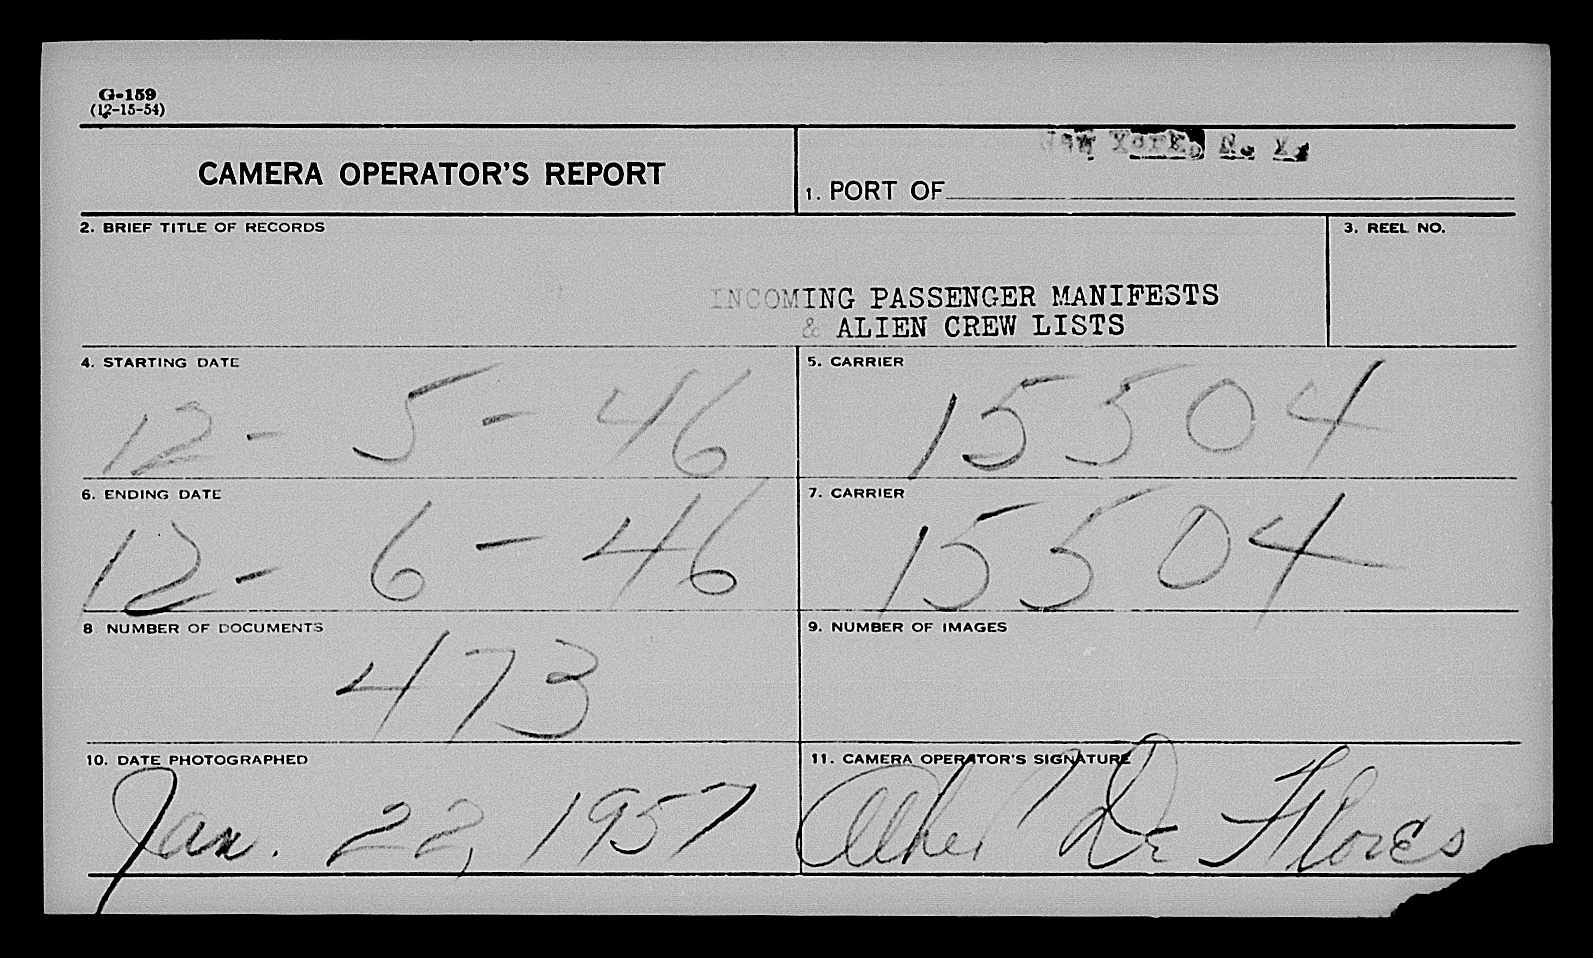 G-159
(12-15-54)
CAMERA OPERATOR'S REPORT
New York, N. Y.
1. PORT OF
2. BRIEF TITLE OF RECORDS
3. REEL NO.
INCOMING PASSENGER MANIFESTS
& ALIEN CREW LISTS
4. STARTING DATE
12- 5-46
5. CARRIER
15504
6. ENDING DATE
12- 6-46
7. CARRIER
15504
8 NUMBER OF DOCUMENTS
473
9. NUMBER OF IMAGES
10. DATE PHOTOGRAPHED
Jan. 22, 1957
11. CAMERA OPERATOR'S SIGNATURE
De Flores